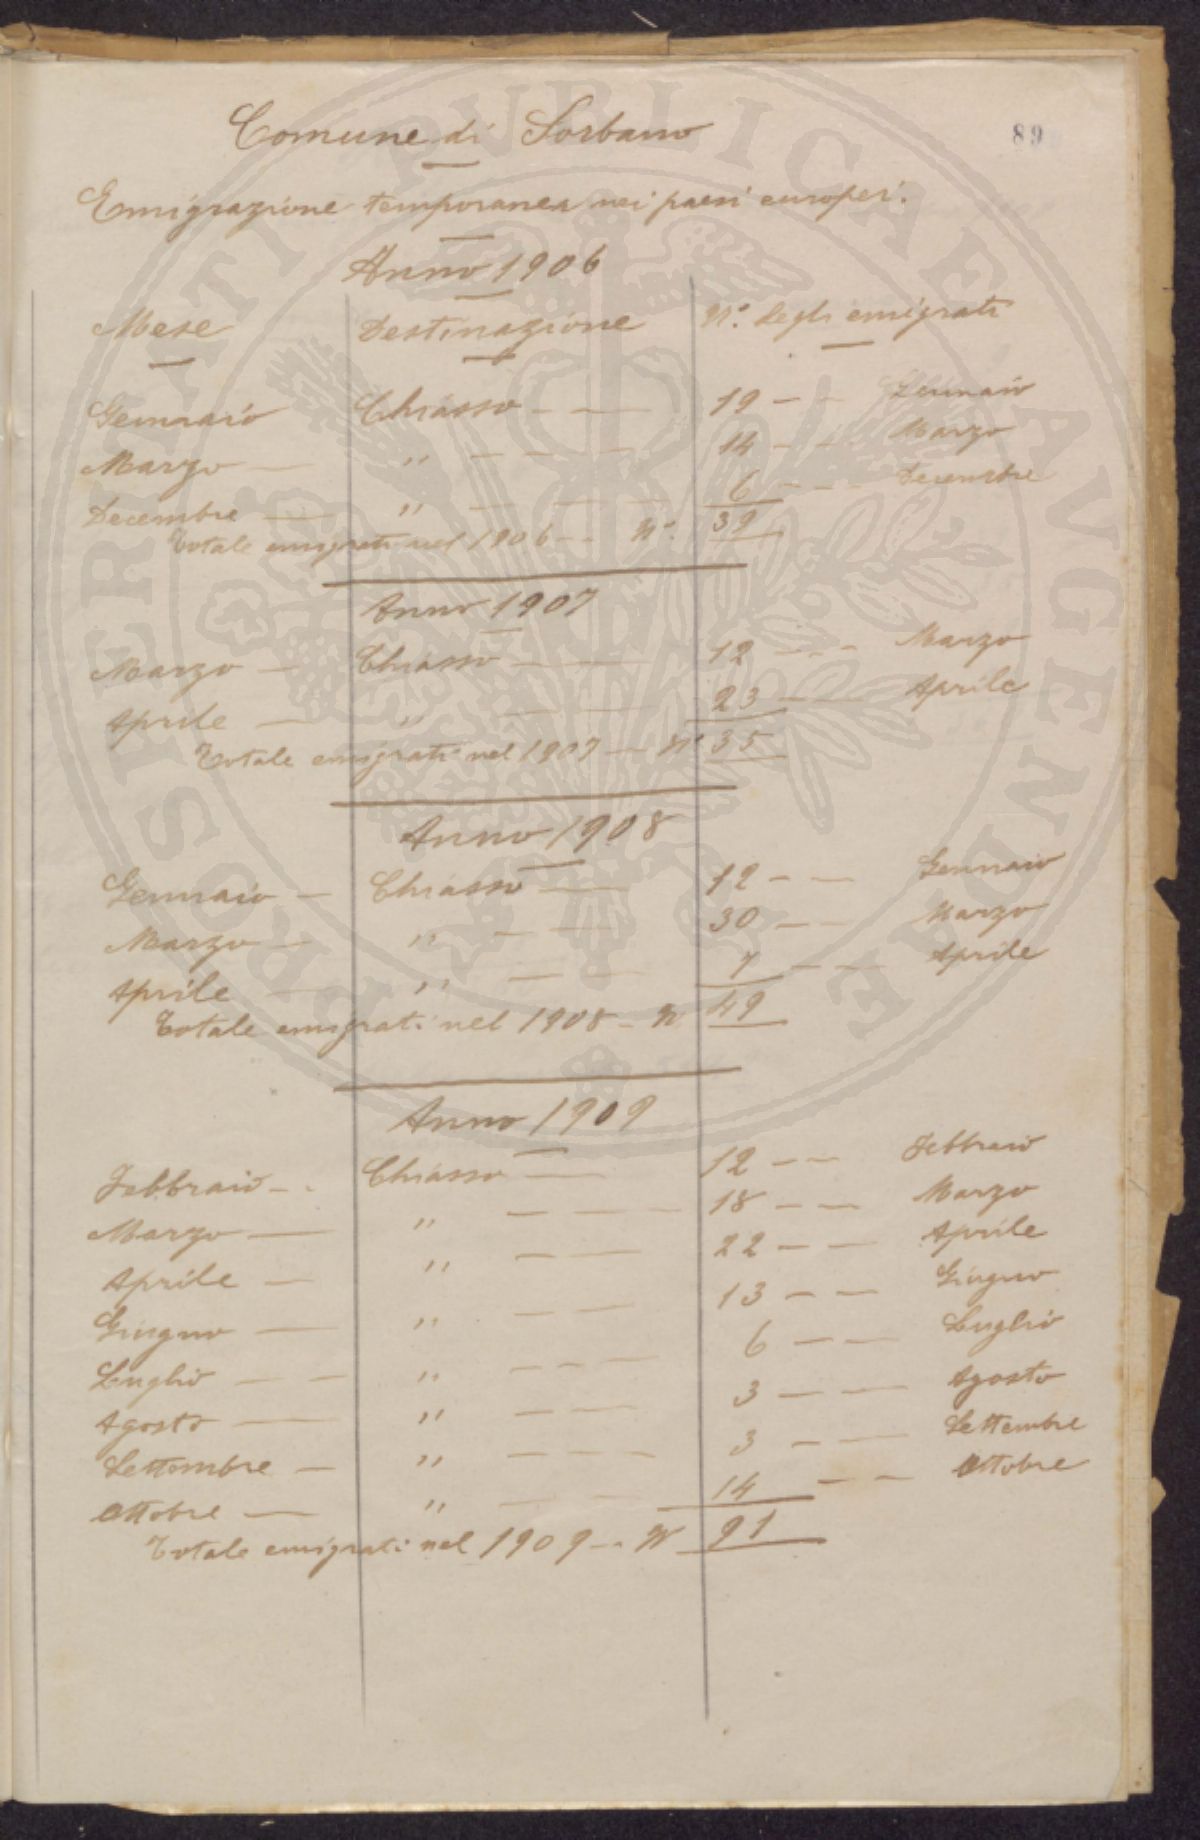 89
Comune di Sorbano
Emigrazione temporanea nei paesi europei.
Anno 1906
Mese Destinazione N.º degli emigrati
Gennaio Chiasso - - - 19 - - Gennaio
Marzo - " - - - - 14 - - - Marzo
Decembre - " - - - 6 - - - Decembre
Totale emigrati nel 1906 - - N.º 39
Anno 1907
Marzo - Chiasso - - - 12 - - - Marzo
Aprile - " - - - 23 - - Aprile
Totale emigrati nel 1907 - Nº 35
Anno 1908
Gennaio - Chiasso - - 12 - - Gennaio
Marzo - " - - - 30 - - Marzo
Aprile - " - - - 7 - - - Aprile
Totale emigrati nel 1908 - N. 49
Anno 1909
Febbraio - - Chiasso - - 12 - - Febbraio
Marzo - " - - - - 18 - - Marzo
Aprile - " - - - 22 - - Aprile
Giugno - " - - - 13 - - Giugno
Luglio - - " - - - - 6 - - Luglio
Agosto - " - - - 3 - - Agosto
Settembre - " - - - - 3 - - Settembre
Ottobre - " - - - 14 - - Ottobre
Totale emigrati nel 1909 - - N 91
PROSPERITATI PUBLICAE AVGENDAE